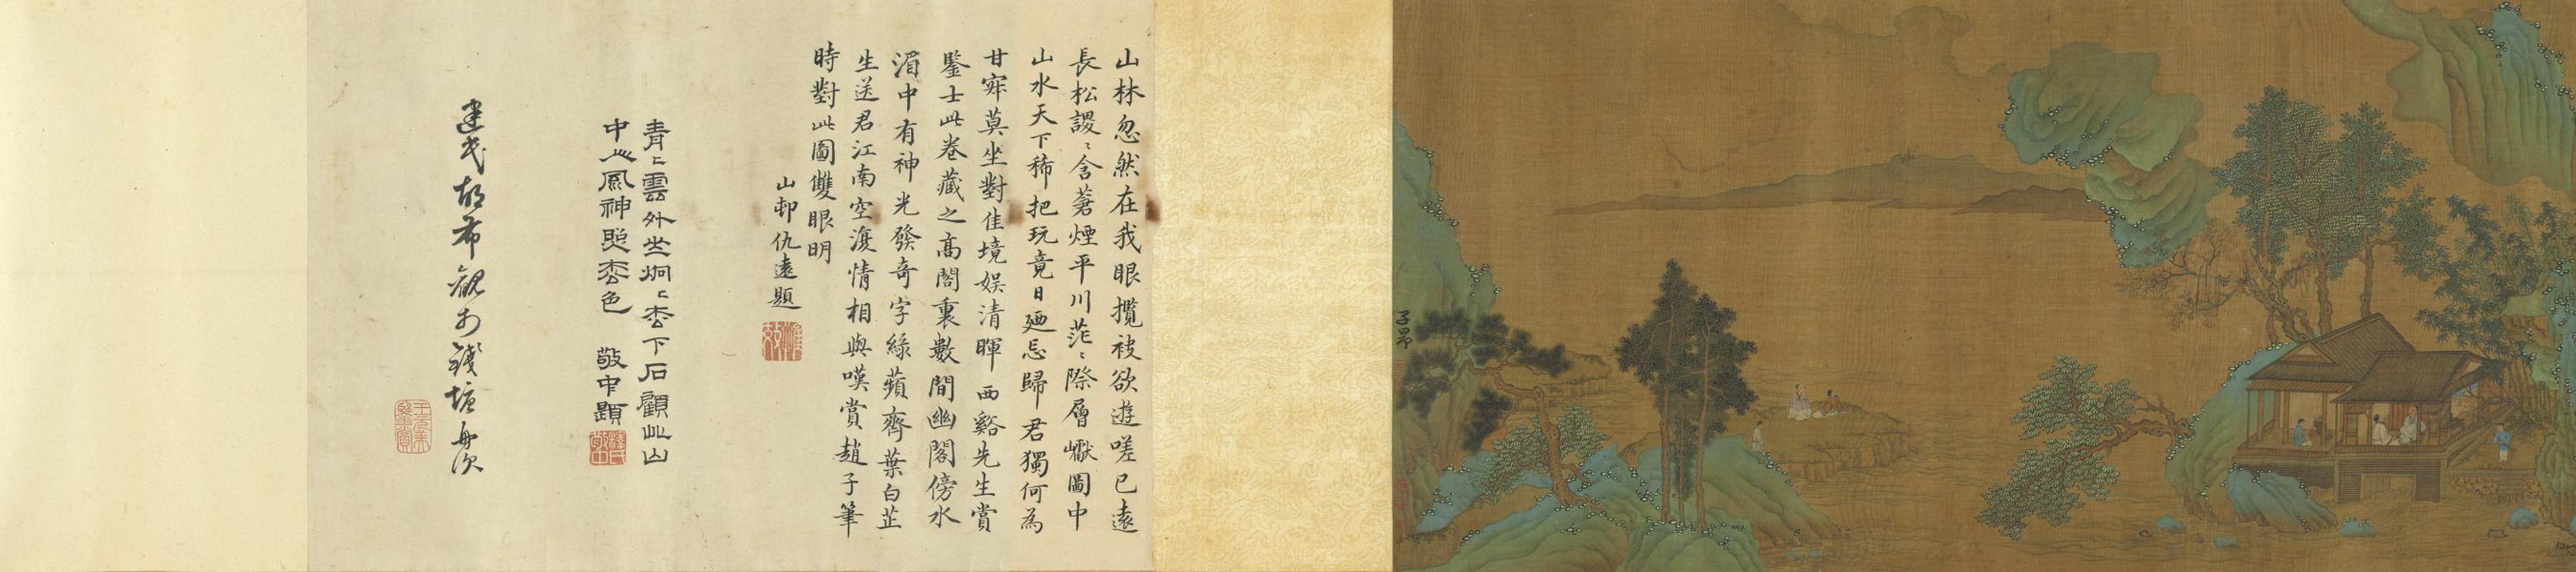 子昂
山林忽然在我眼攬袂欲遊嗟已遠
長松謖〻含蒼煙平川茫〻際層巘圖中
山水天下稀把玩竟日廼忘歸君獨何為
甘寂莫坐對佳境娱清暉西谿先生賞
鑒士此卷藏之高閣裏數間幽閣傍水
湄中有神光發奇字綠蘋齊葉白芷
生送君江南空復情相與嘆賞趙子筆
時對此圖雙眼明
山邨仇遠題
青〻雲外山炯〻松下石顧此山
中人風神照松色
敬中題
建武胡希觀于錢塘舟次